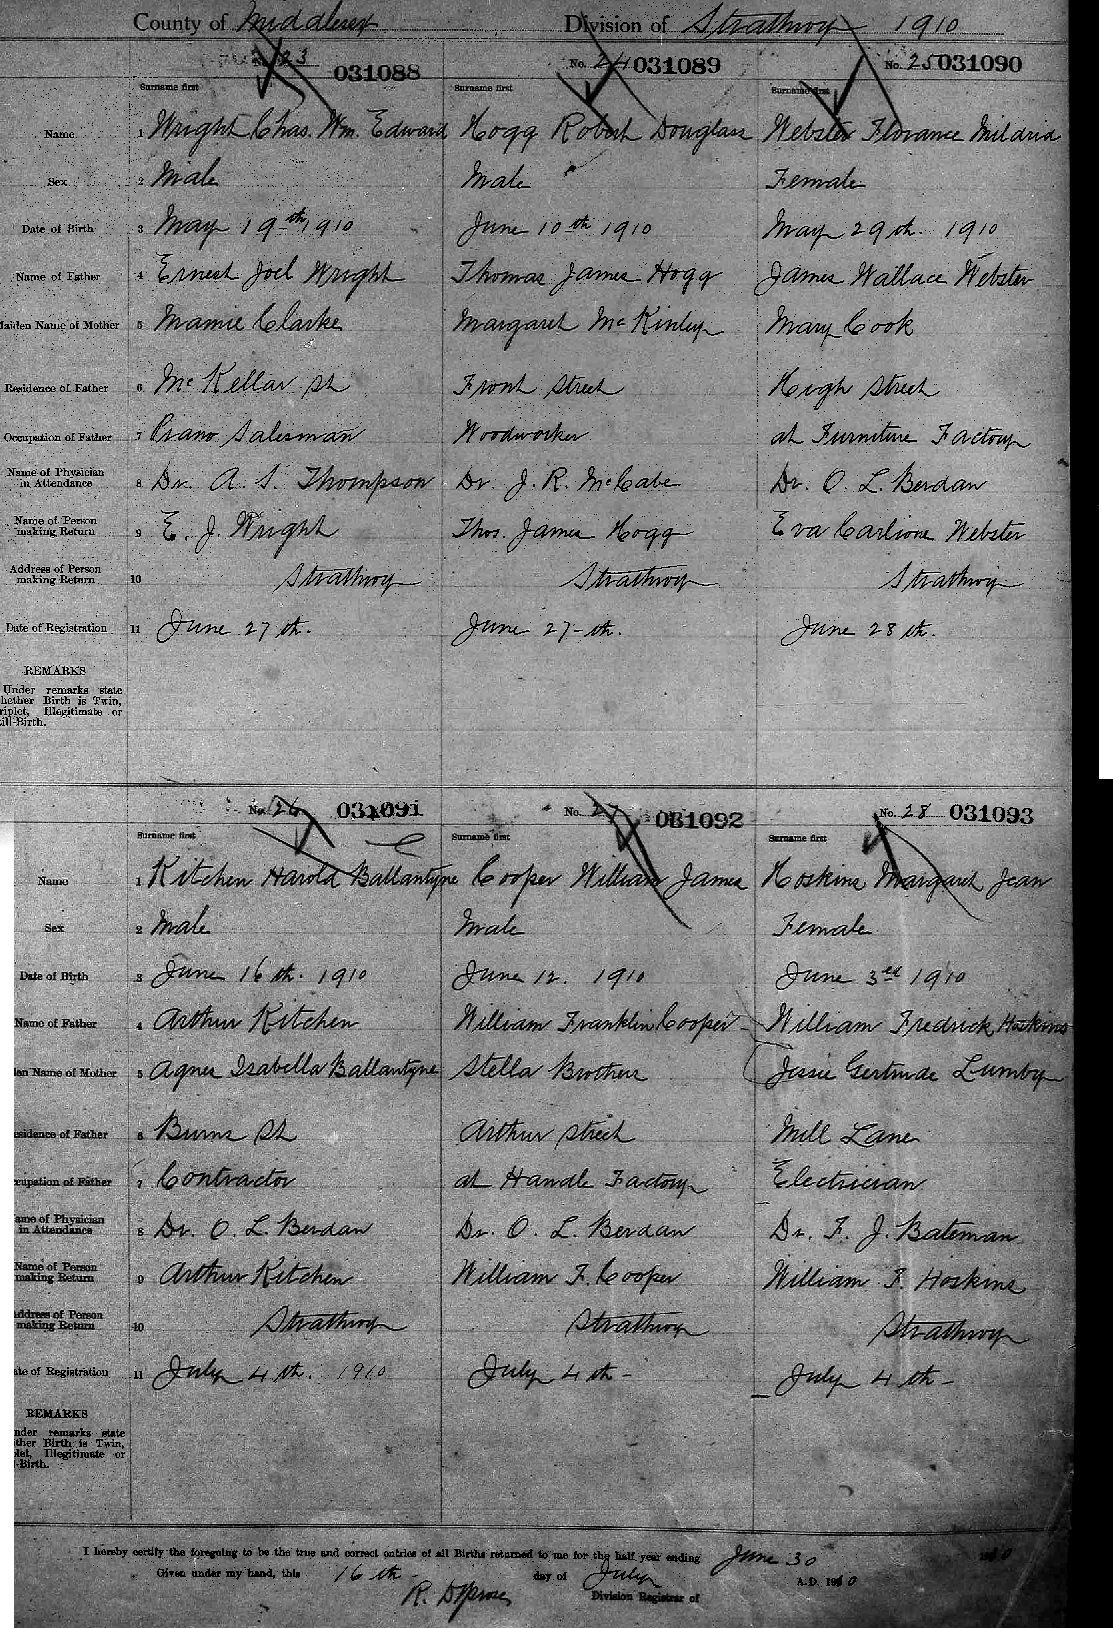 County of Middlesex Division of Strathroy 1910
No. 23 031088 No. 24 031089 No. 25 031090
Surname first Surname first Surname first
Name 1 Wright Chas. Wm. Edward Hogg Robert Douglass Webster Florance Mildrid
Sex 2 Male Male Female
Date of Birth 3 May 19th 1910 June 10th 1910 May 29th. 1910
Name of Father 4 Ernest Joel Wright Thomas James Hogg James Wallace Webster
Maiden Name of Mother 5 Mamie Clarke Margaret McKinley Mary Cook
Residence of Father 6 McKellar St Front Street High Street
Occupation of Father 7 Piano Salesman Woodworker at Furniture Factory
Name of Physician in Attendance 8 Dr. A. S. Thompson Dr. J. R. McCabe Dr. O. L. Berdan
Name of Person making Return 9 E. J. Wright Thos. James Hogg Eva Carlione Webster
Address of Person making Return 10 Strathroy Strathroy Strathroy
Date of Registration 11 June 27th. June 27-th. June 28th.
REMARKS
Under remarks state
hether Birth is Twin,
riplet, Illegitimate or
till-Birth.
No. 26 031091 No. 27 031092 No. 28 031093
Surname first Surname first Surname first
Name 1 Kitchen Harold Ballantyne Cooper William James Hoskins Margaret Jean
Sex 2 Male Male Female
Date of Birth 3 June 16th. 1910 June 12. 1910 June 3rd 1910
Name of Father 4 Arthur Kitchen William Franklin Cooper William Fredrick Hoskins
den Name of Mother 5 Agnes Isabella Ballantyne Stella Brothers Jessie Gertrude Lumby
esidence of Father 6 Burns St Arthur Street Mill Lane
cupation of Father 7 Contractor at Handle Factory Electrician
ame of Physician in Attendance 8 Dr. O. L. Berdan Dr. O. L. Berdan Dr. F. J. Bateman
Name of Person making Return 9 Arthur Kitchen William F. Cooper William F. Hoskins
Address of Person making Return 10 Strathroy Strathroy Strathroy
ate of Registration 11 July 4th. 1910 July 4th- July 4th-
REMARKS
nder remarks state
ther Birth is Twin,
plet, Illegitimate or
-Birth.
I hereby certify the foregoing to be the true and correct entries of all Births returned to me for the half year ending June 30 1910
Given under my hand, this 16th- day of July A.D. 1910
R. Division Registrar of